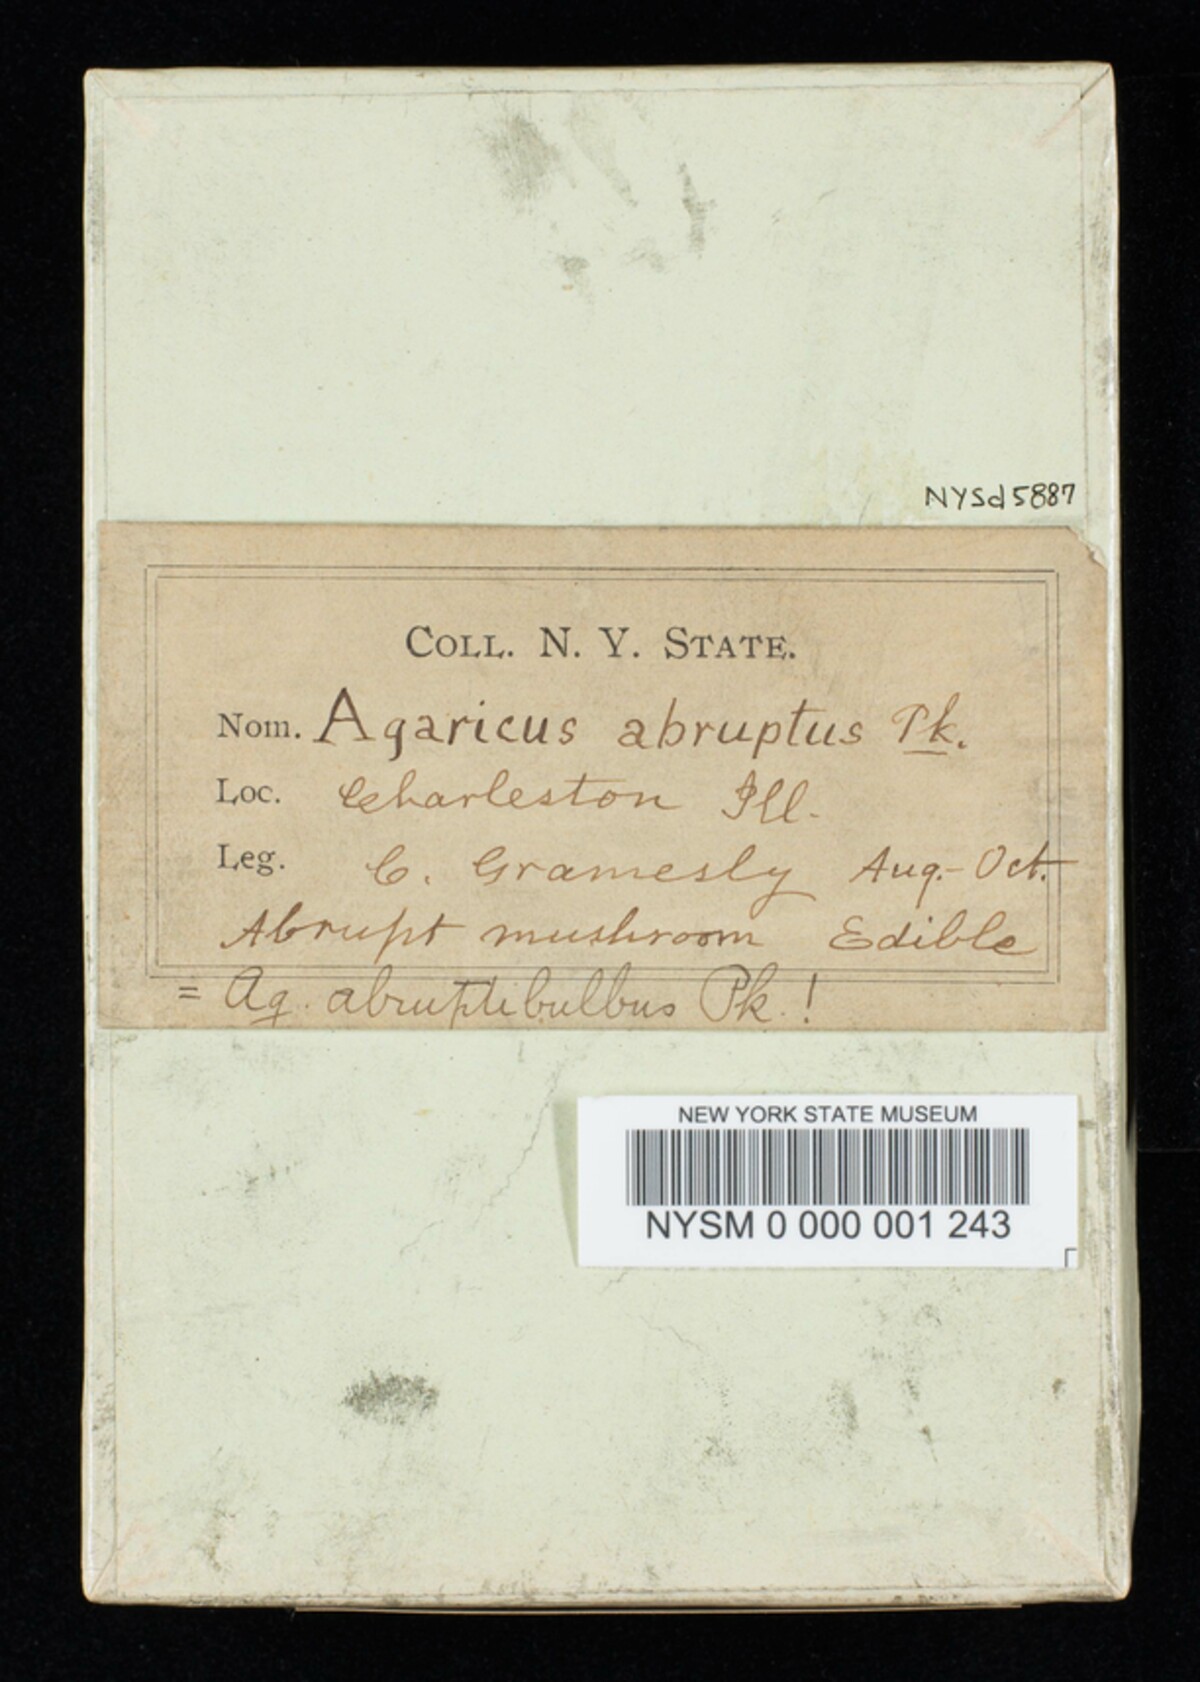 NYSd5887
COLL. N. Y. STATE.
Nom. Agaricus abruptus Pk.
Loc. Charleston Ill.
Leg. C. Gramesly Aug.-Oct.
Abrupt mushroom Edible
= Ag. abruptibulbus Pk.!
NEW YORK STATE MUSEUM
NYSM 0 000 001 243